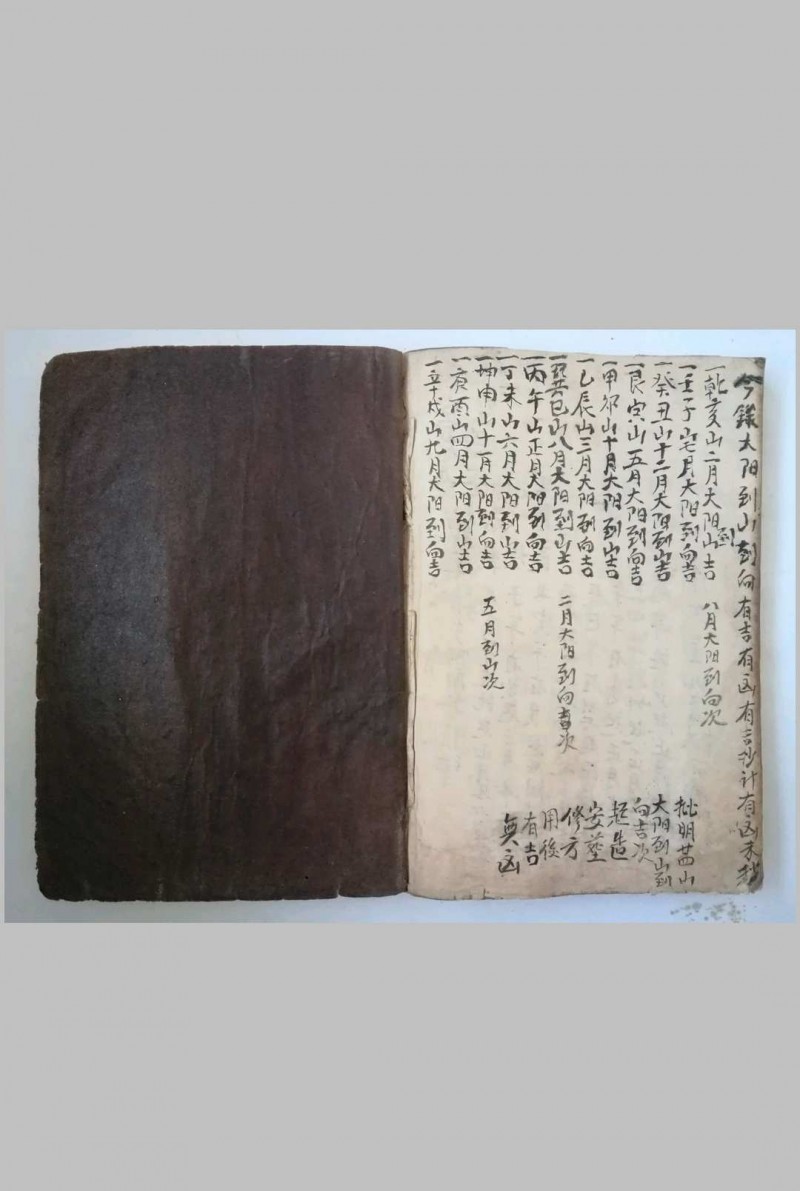 今錄太阳到山到向有吉有凶有吉抄计有凶未抄
一乾亥山二月大阳到山吉 八月大阳到向次
一壬子山七月大阳到向吉
一癸丑山十二月大阳到山吉
一艮寅山五月大阳到向吉
一甲卯山十月大阳到山吉
一乙辰山三月大阳到向吉
一巽巳山八月大阳到山吉 二月大阳到向吉次
一丙午山正月大阳到向吉
一丁未山六月大阳到山吉
一坤申山十一月大阳到向吉 五月到山次
一庚酉山四月大阳到山吉
一辛戌山九月大阳到向吉
批明廿四山
大阳到山到
向吉次
起造
安葬
修方
用後
有吉
無凶